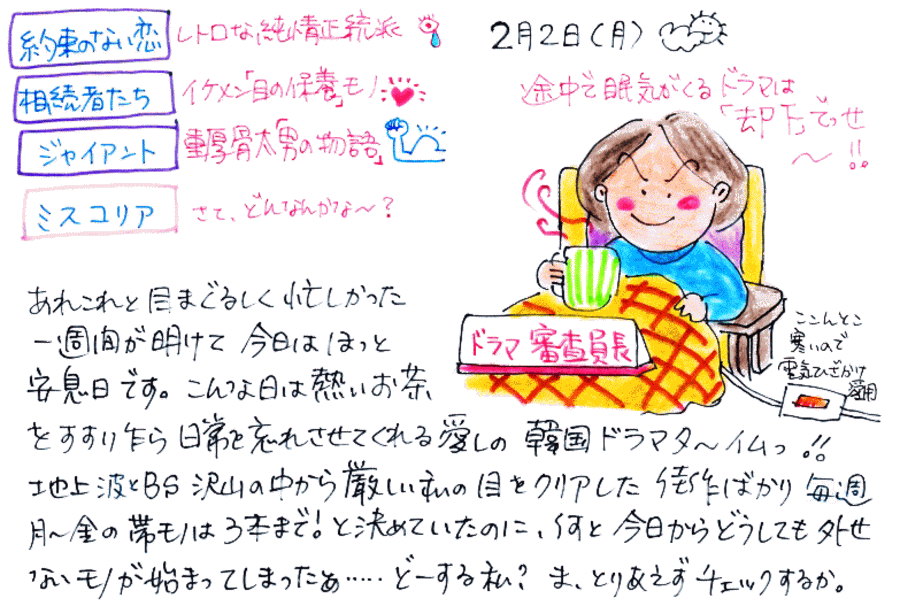 約束のない恋 レトロな純情正統派
相続者たち イケメン「目の保養」モノ
ジャイアント 重厚骨太「男の物語」
ミスコリア さて、どんなんかな〜?
2月2日(月)
途中で眠気がくるドラマは
「却下」でっせ
〜!!
ドラマ審査員長
ここんとこ
寒いので
電気ひざかけ
愛用
あれこれと目まぐるしく忙しかった
一週間が明けて今日はほっと
安息日です。こんな日は熱いお茶
をすすり乍ら日常を忘れさせてくれる愛しの韓国ドラマタ〜イムっ!!
地上波とBS沢山の中から厳しい私の目をクリアした佳作ばかり毎週
月〜金の帯モノは3本まで!と決めていたのに、何と今日からどうしても外せ
ないモノが始まってしまったぁ……どーする私?ま、とりあえずチェックするか。